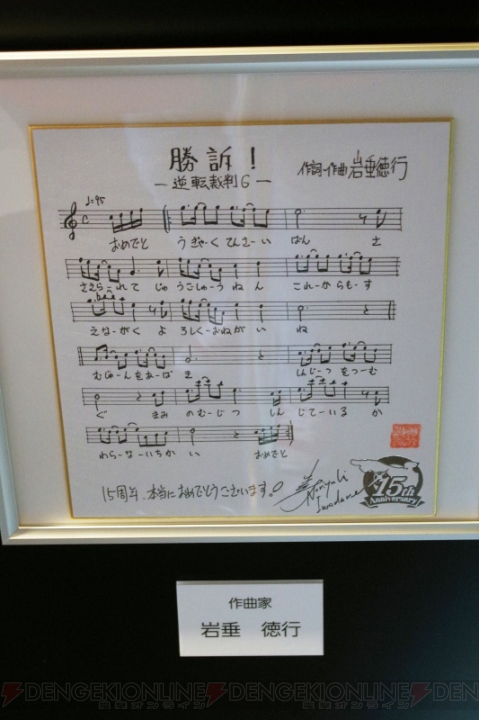 勝訴！
作詞・作曲 岩垂徳行
－逆転裁判6－
♩=95
おめでと うぎゃ・くてんさ・い ばん さ
ささえら・れて じゅ うごしゅ・うねん これ・からも・す
えなーがく よ ろしく・おねがい ね
むじゅーんをあーばき しんじーつをつーむ
ぐ きみのむじつ しんじてーいる か
わらなーいちかい おめでと
15周年、本当におめでとうございます。
Noriyuki Iwadare
15th
Anniversary
作曲家
岩垂 徳行
DENGEKIONLINE DENGEKIONLINE
電撃オンライン 電撃オンライン